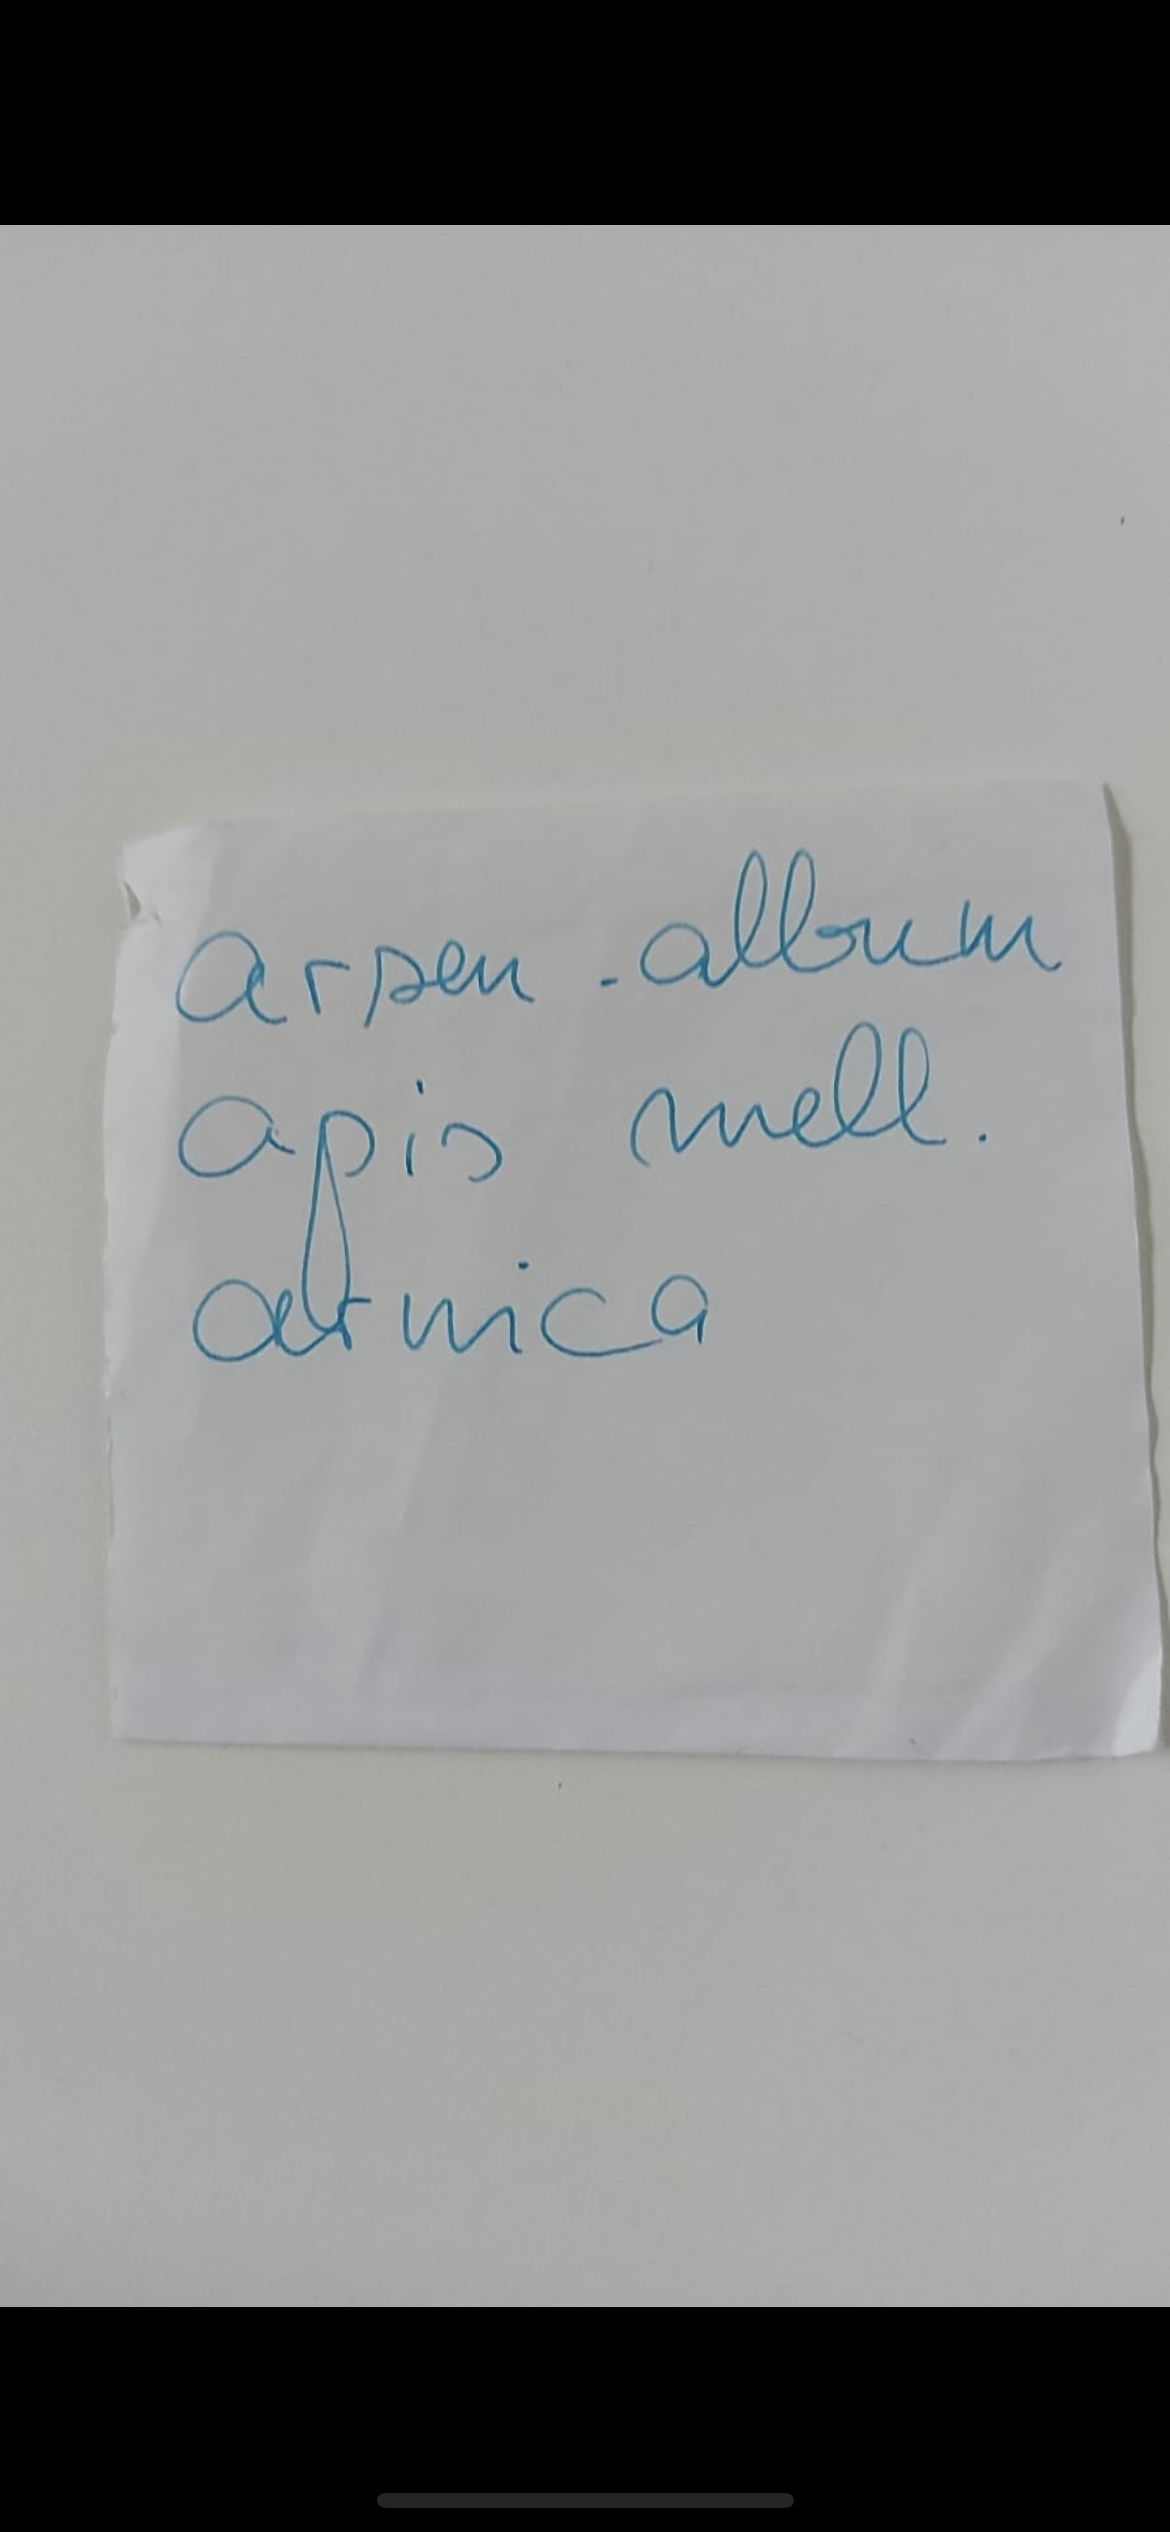 arsen.album
apis mell.
arnica